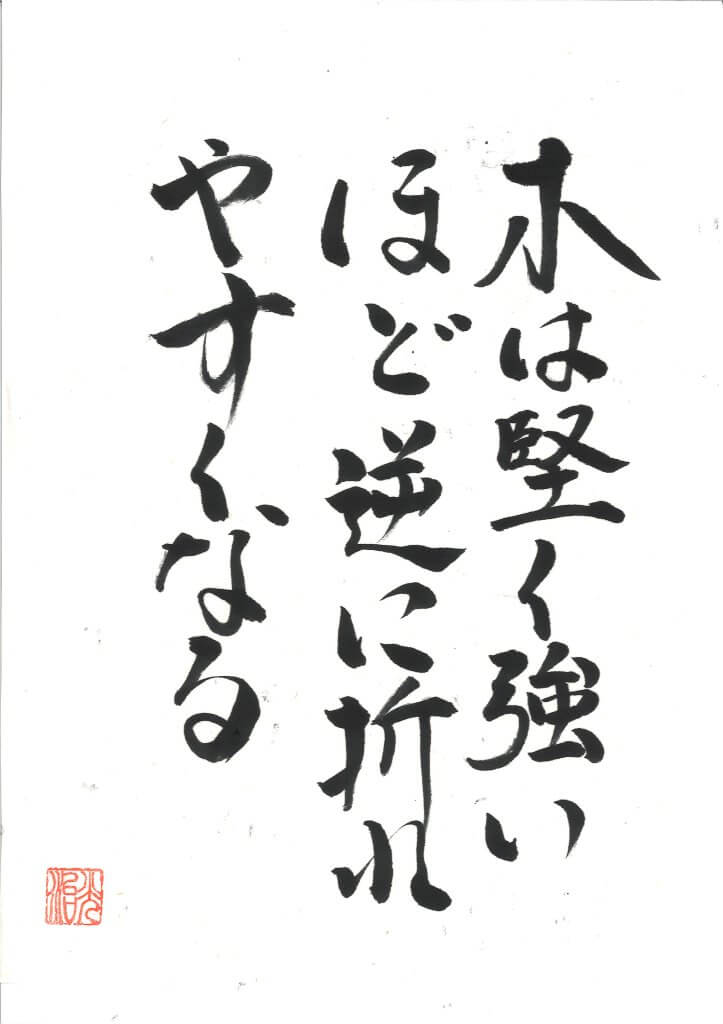 木は堅く強い
ほど逆に折れ
やすくなる